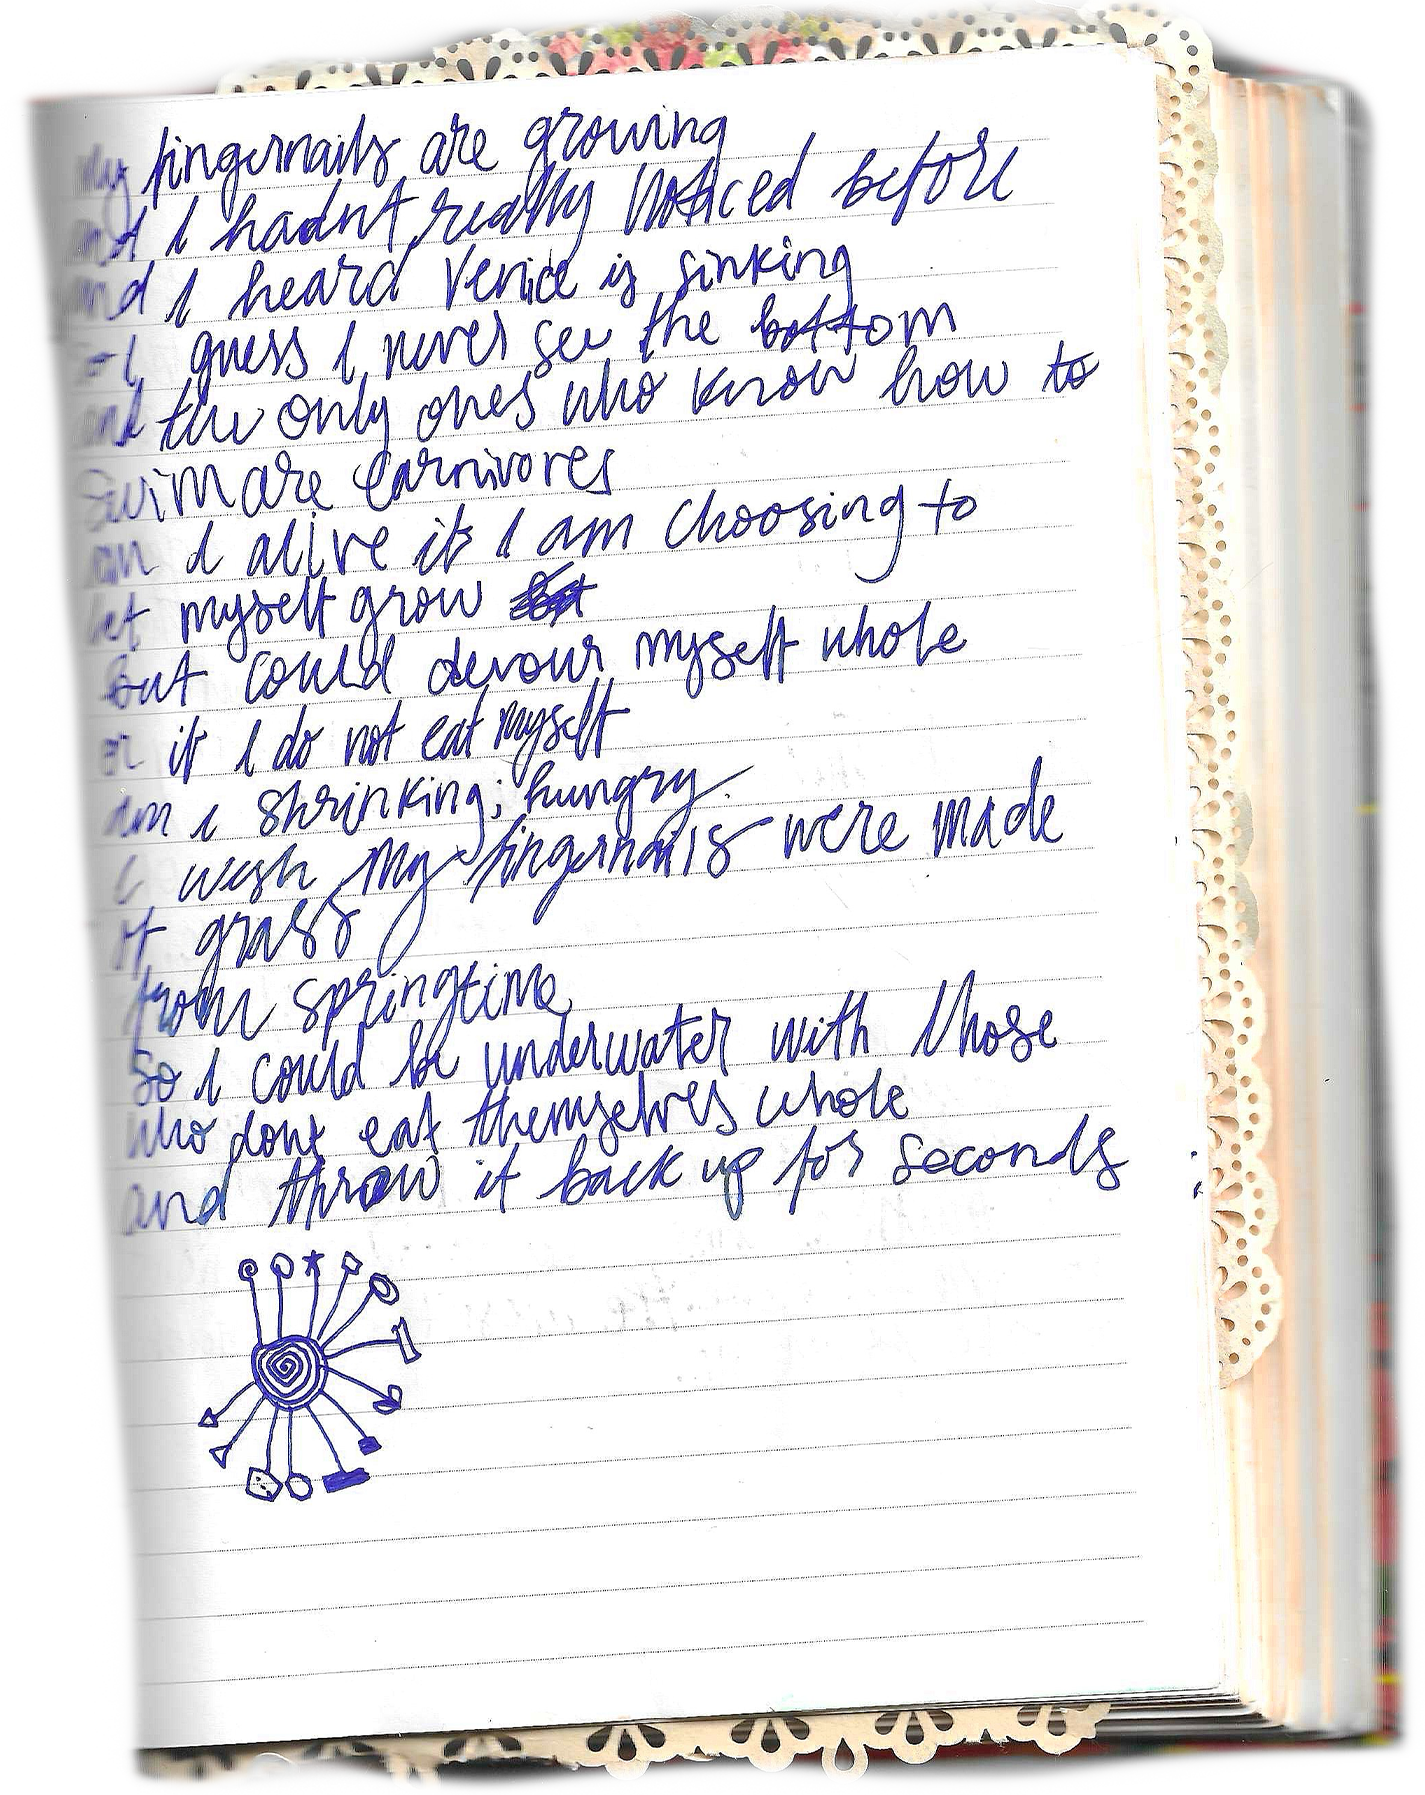 My fingernails are growing
and I hadn't really noticed before
and I heard Venice is sinking
I guess I never see the bottom
and the only ones who know how to
swim are carnivores
am I alive if I am choosing to
let myself grow
but could devour myself whole
or if I do not eat myself
am I shrinking; hungry.
I wish my fingernails were made
of grass
from springtime
So I could be underwater with those
who dont eat themselves whole
and throw it back up for seconds